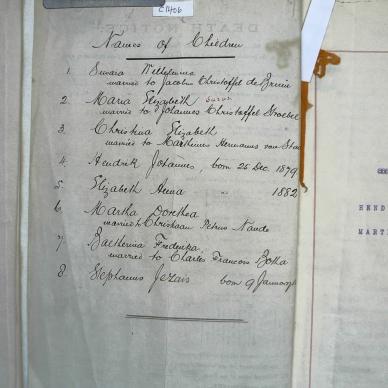 C1406
DEATH NOTICE
Names of Children
1. Susara Wilhelmina
married to Jacobus Christoffel de Bruin
2. Maria Elizabeth
married to Johannes Christoffel Stroebel
3. Christina Elizabeth
married to Marthinus Hermanus van Staa
4. Hendrik Johannes, born 25 Dec. 1879
5. Elizabeth Anna " 1882
6. Martha Dorothea
married to Christiaan Petrus Naude
7. Catherina Frederika,
married to Charles Francois Botha
8. Stephanus Jezais born 9 January
HEND
MART